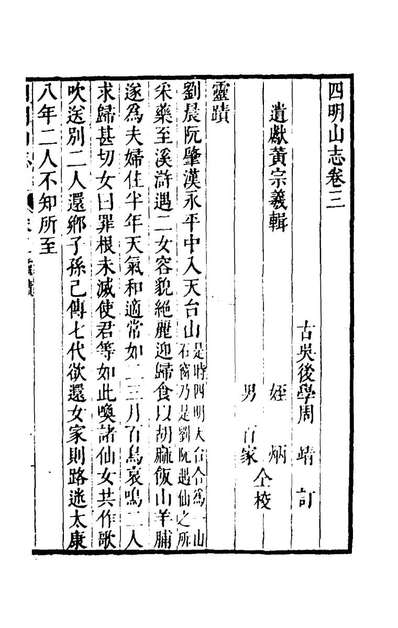 四明山志卷三
古吳後學周　靖　訂
遺獻黃宗羲輯　　姪　炳
男　百家　仝校
靈蹟
劉晨阮肇漢永平中入天台山是時四明天台合爲一山石窗乃是劉阮遇仙之所
采藥至溪滸遇二女容貌絕麗迎歸食以胡麻飯山羊脯
遂爲夫婦住半年天氣和適常如二三月百鳥哀鳴二人
求歸甚切女曰罪根未滅使君等如此喚諸仙女共作歌
吹送別二人還鄉子孫已傳七代欲還女家則路迷太康
八年二人不知所至